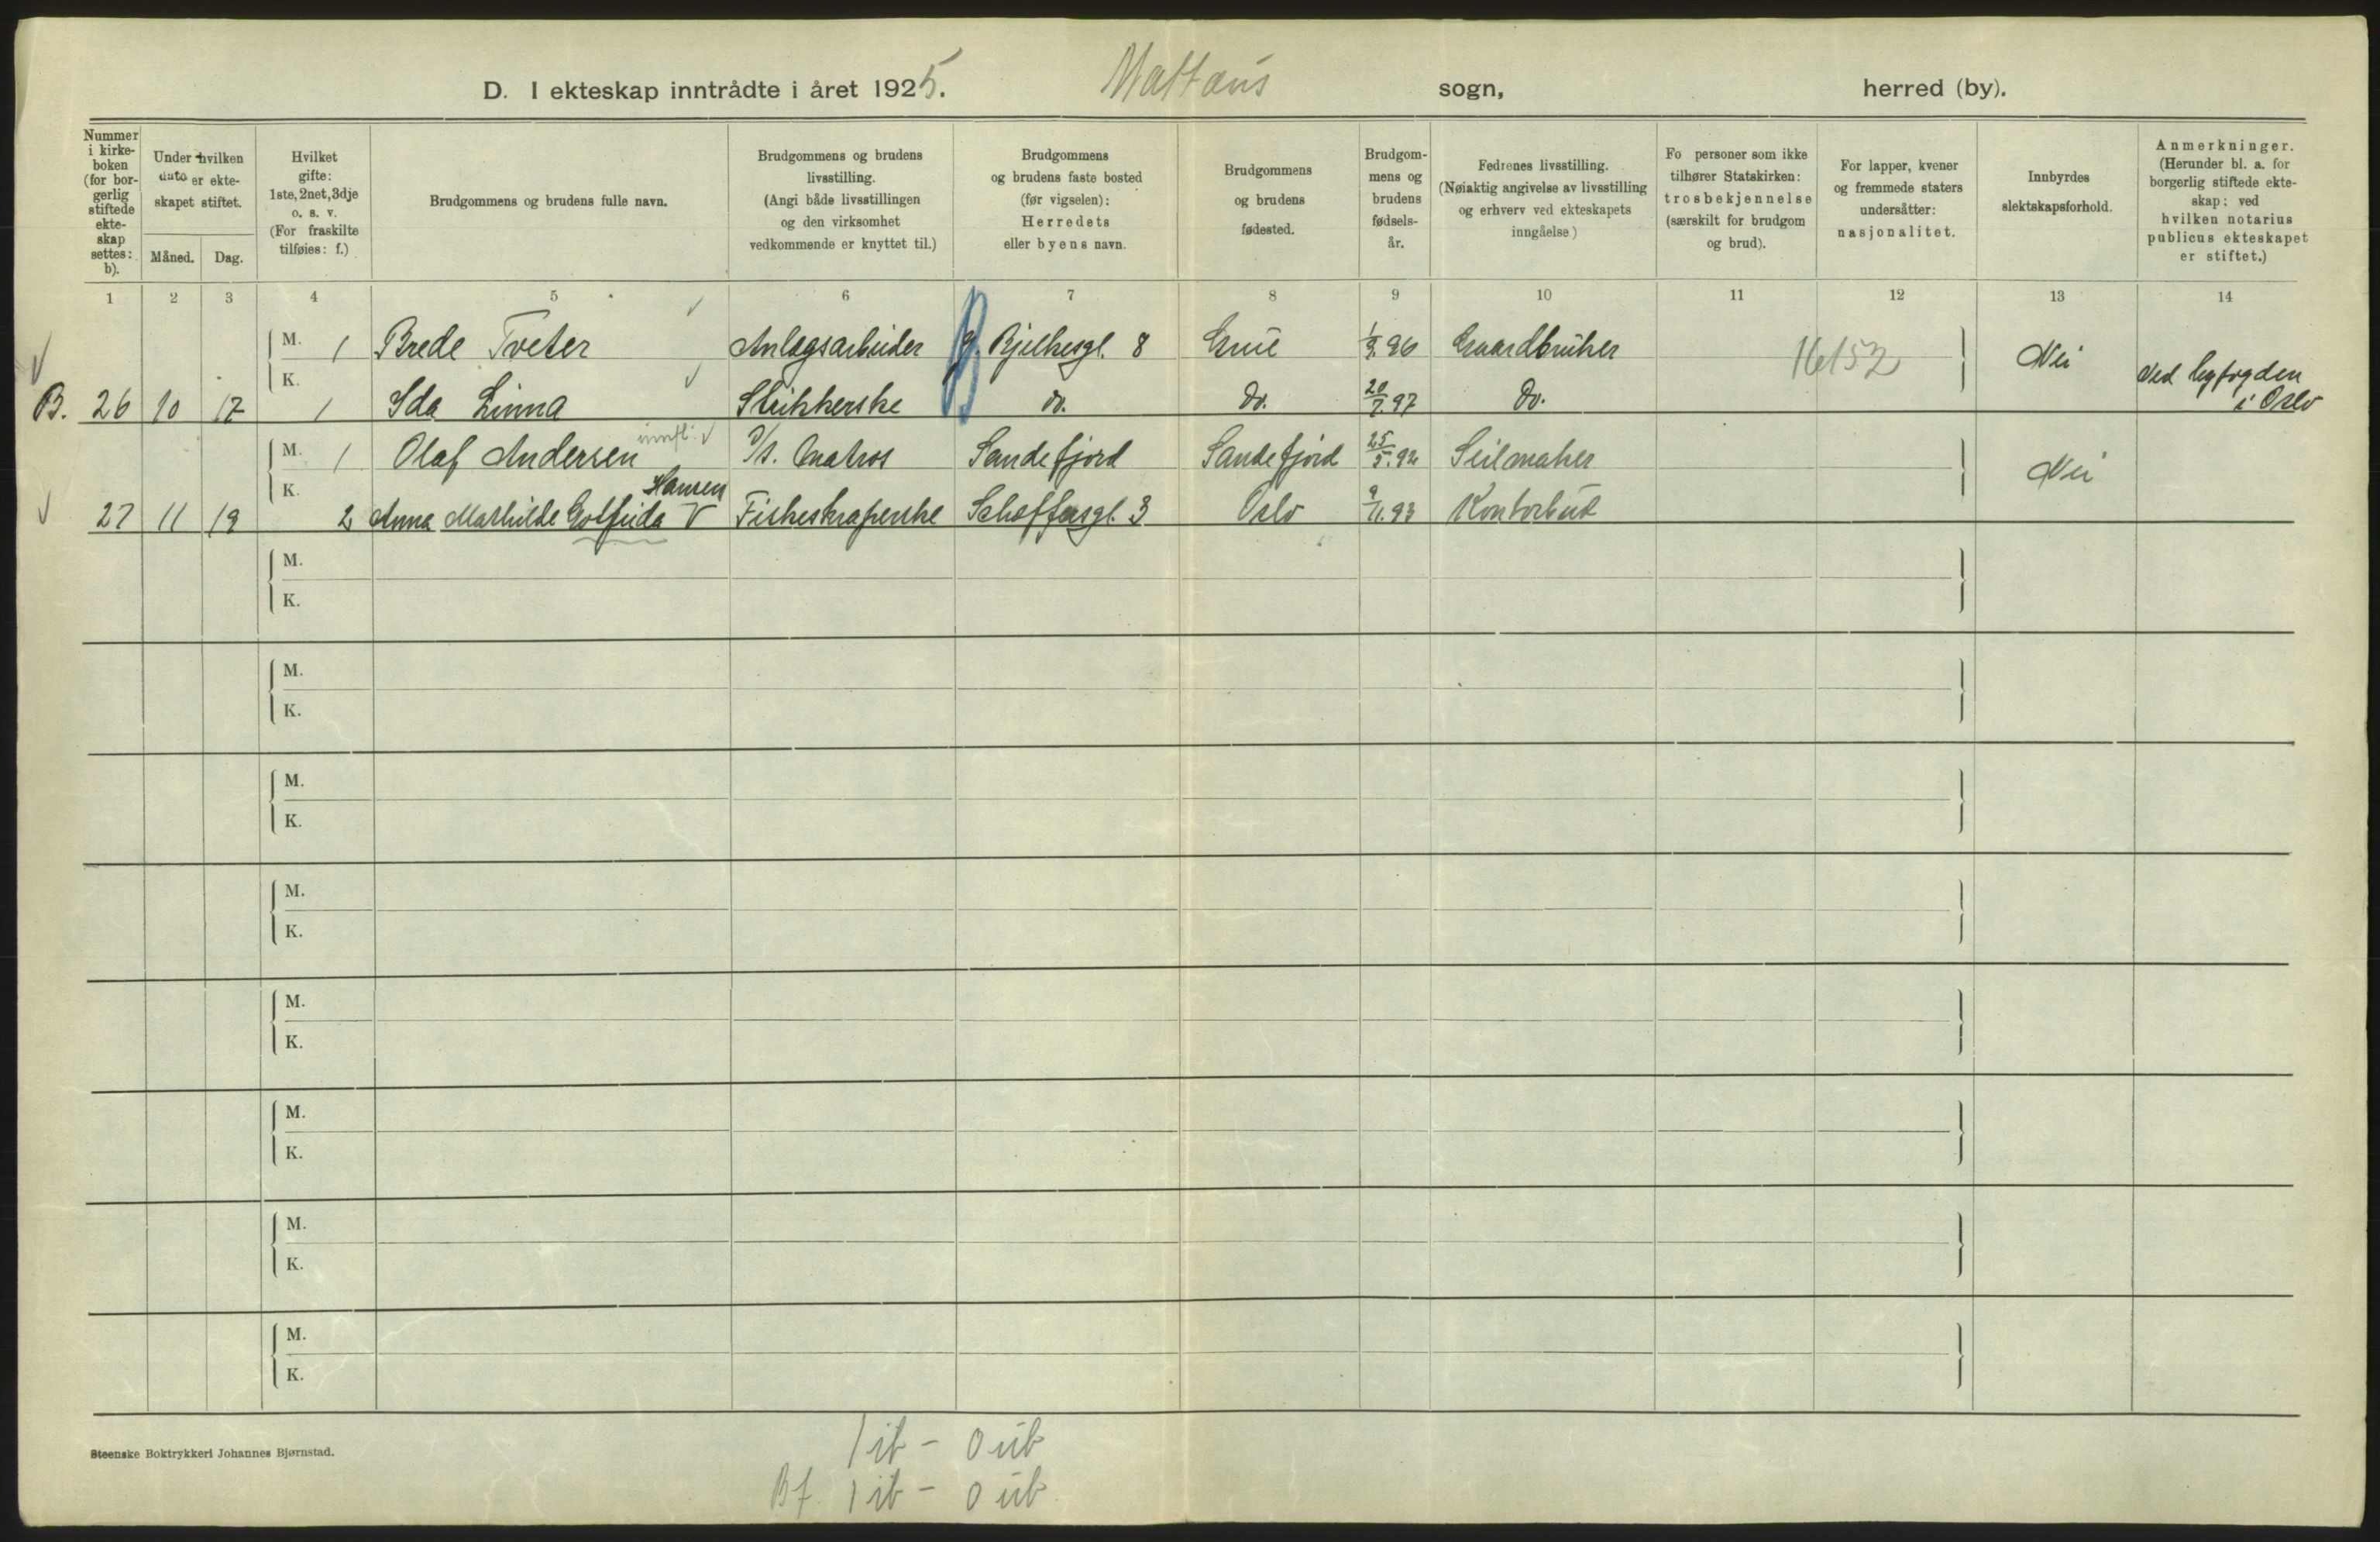 D. I ekteskap inntrådte i året 1925. Mattæus sogn, herred (by).
Nummer i kirke-boken (for bor-gerlig stiftede ekte-skap settes: b).
Under hvilken dato er ekte-skapet stiftet.
Måned. Dag.
Hvilket gifte: 1ste, 2net, 3dje o. s. v. (For fraskilte tilføies: f.)
Brudgommens og brudens fulle navn.
Brudgommens og brudens livsstilling. (Angi både livsstillingen og den virksomhet vedkommende er knyttet til.)
Brudgommens og brudens faste bosted (før vigselen): Herredets eller byens navn.
Brudgommens og brudens fødested.
Brudgom-mens og brudens fødsels-år.
Fedrenes livsstilling. (Nøiaktig angivelse av livsstilling og erhverv ved ekteskapets inngåelse)
Fo personer som ikke tilhører Statskirken: trosbekjennelse (særskilt for brudgom og brud).
For lapper, kvener og fremmede staters undersåtter: nasjonalitet.
Innbyrdes slektskapsforhold.
Anmerkninger. (Herunder bl. a. for borgerlig stiftede ekte-skap: ved hvilken notarius publicus ekteskapet er stiftet.)
1 2 3 4 5 6 7 8 9 10 11 12 13 14
M. 1 Brede Tveter Anlægsarbeider J. Bjelkesgt. 8 Grue 1/9.96 Gaardbruker 16152 Nei Ved byfogden
B. 26 10 17 K. 1 Ida Linna Strikkerske do. do. 20/7.97 do. i Oslo
M. 1 Olaf Andersen innfl. Matros Sandefjord Sandefjord 25/5.92 Seilmaker Nei
Hansen
27 11 19 K. 2 Anna Mathilde Golfrida Fiskeskraperske Scheffersgt. 3 Oslo 9/11.93 Kontorbud
M.
K.
M.
K.
M.
K.
M.
K.
M.
K.
M.
K.
M.
K.
M.
K.
Steenske Boktrykkeri Johannes Bjørnstad.
1 ib - 0 ub
Bf. 1 ib - 0 ub